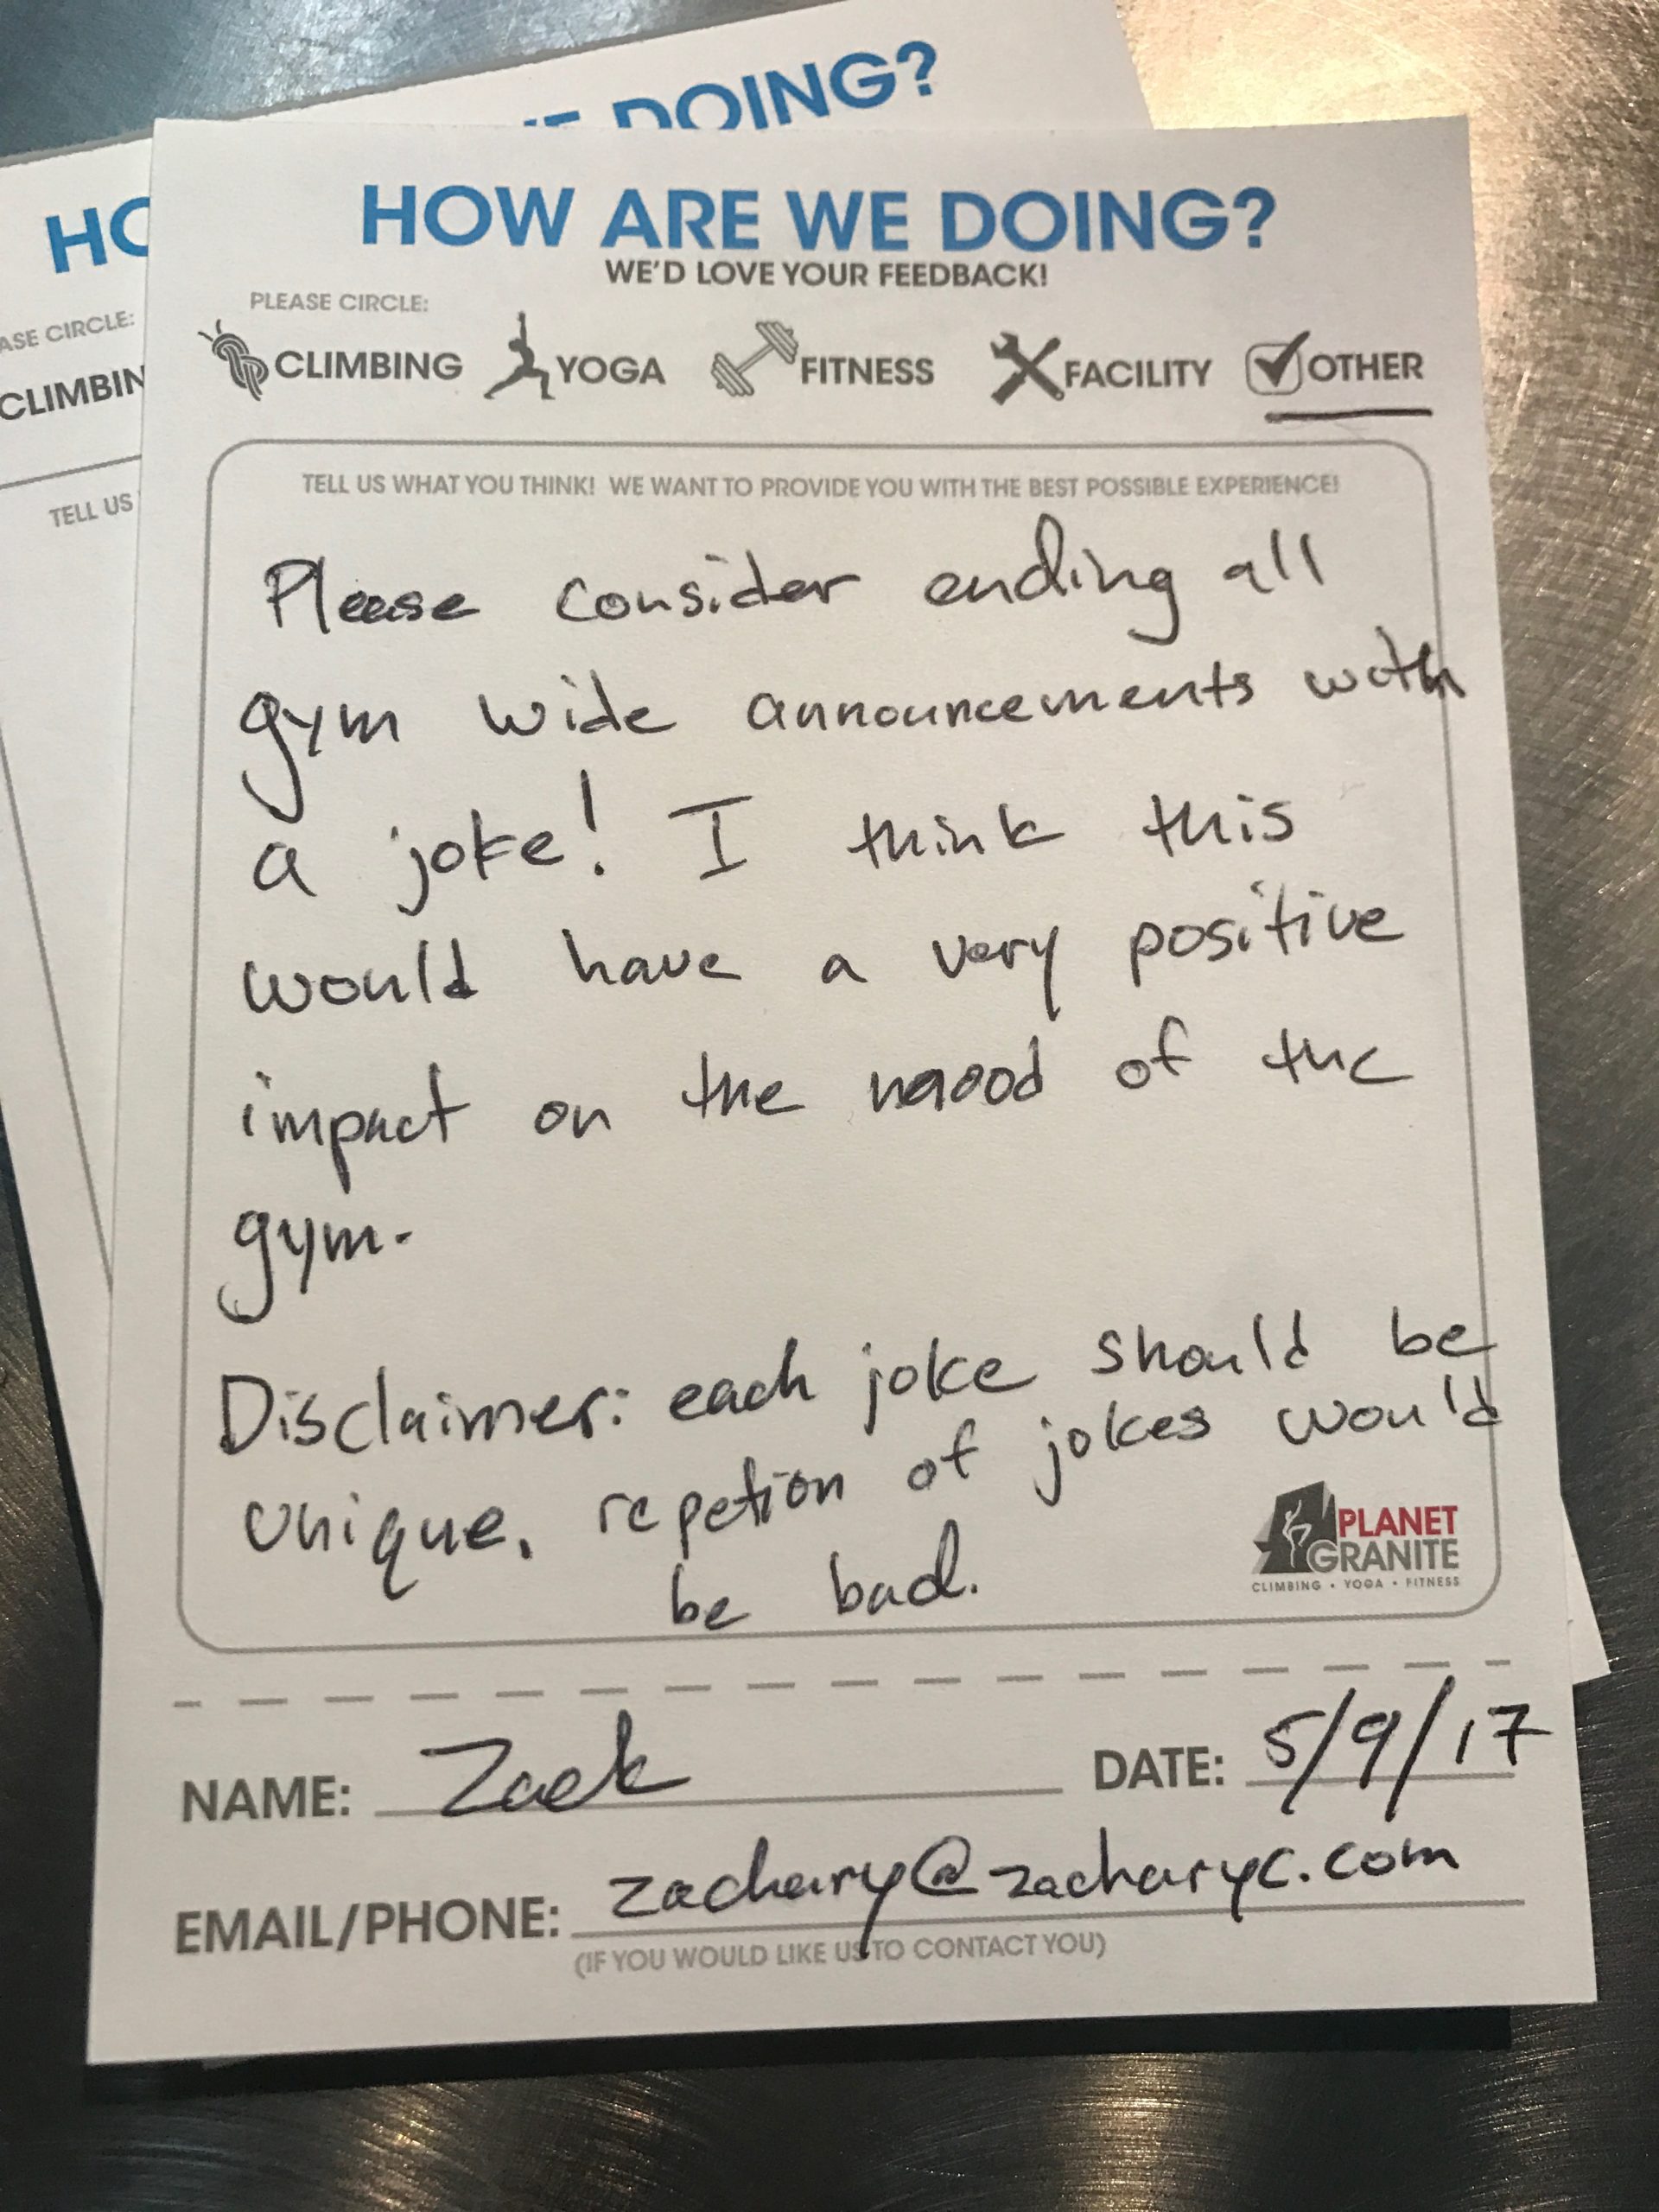 E DOING?
HO
ASE CIRCLE:
CLIMBIN
TELL US
HOW ARE WE DOING?
WE'D LOVE YOUR FEEDBACK!
PLEASE CIRCLE:
CLIMBING YOGA FITNESS FACILITY OTHER
TELL US WHAT YOU THINK! WE WANT TO PROVIDE YOU WITH THE BEST POSSIBLE EXPERIENCE!
Please consider ending all
gym wide announcements with
a joke! I think this
would have a very positive
impact on the mood of the
gym.
Disclaimer: each joke should be
unique. repetion of jokes would
be bad.
PLANET
GRANITE
CLIMBING • YOGA • FITNESS
NAME: Zack DATE: 5/9/17
EMAIL/PHONE: zachary@zacharyc.com
(IF YOU WOULD LIKE US TO CONTACT YOU)